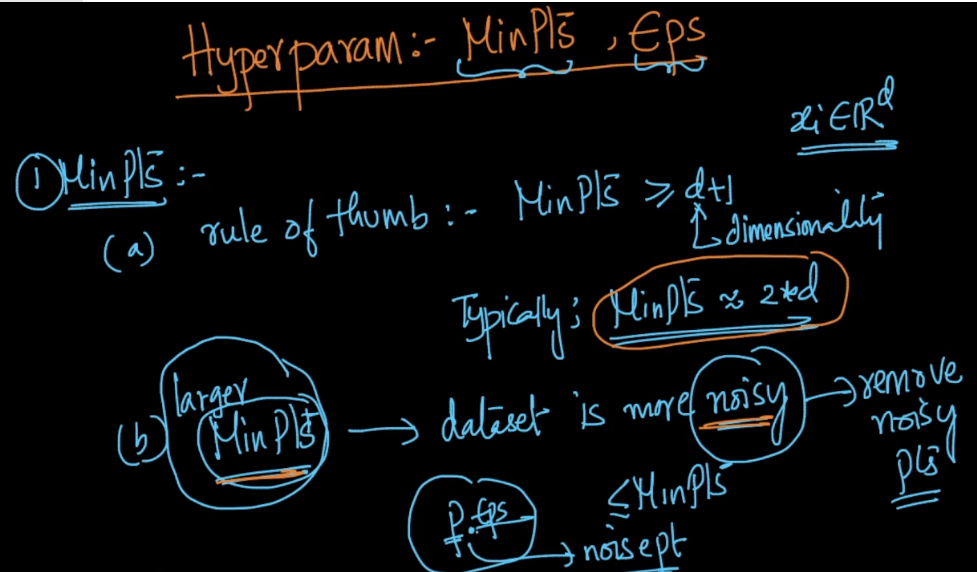 Hyperparam:- MinPts , Eps
xi ∈ ℝ^d
① MinPts :-
(a) rule of thumb :- MinPts ≥ d+1
dimensionality
Typically; MinPts ≈ 2*d
larger
(b) MinPts → dataset is more noisy → remove
noisy
pts
≤ MinPts
p. Eps
→ noise pt